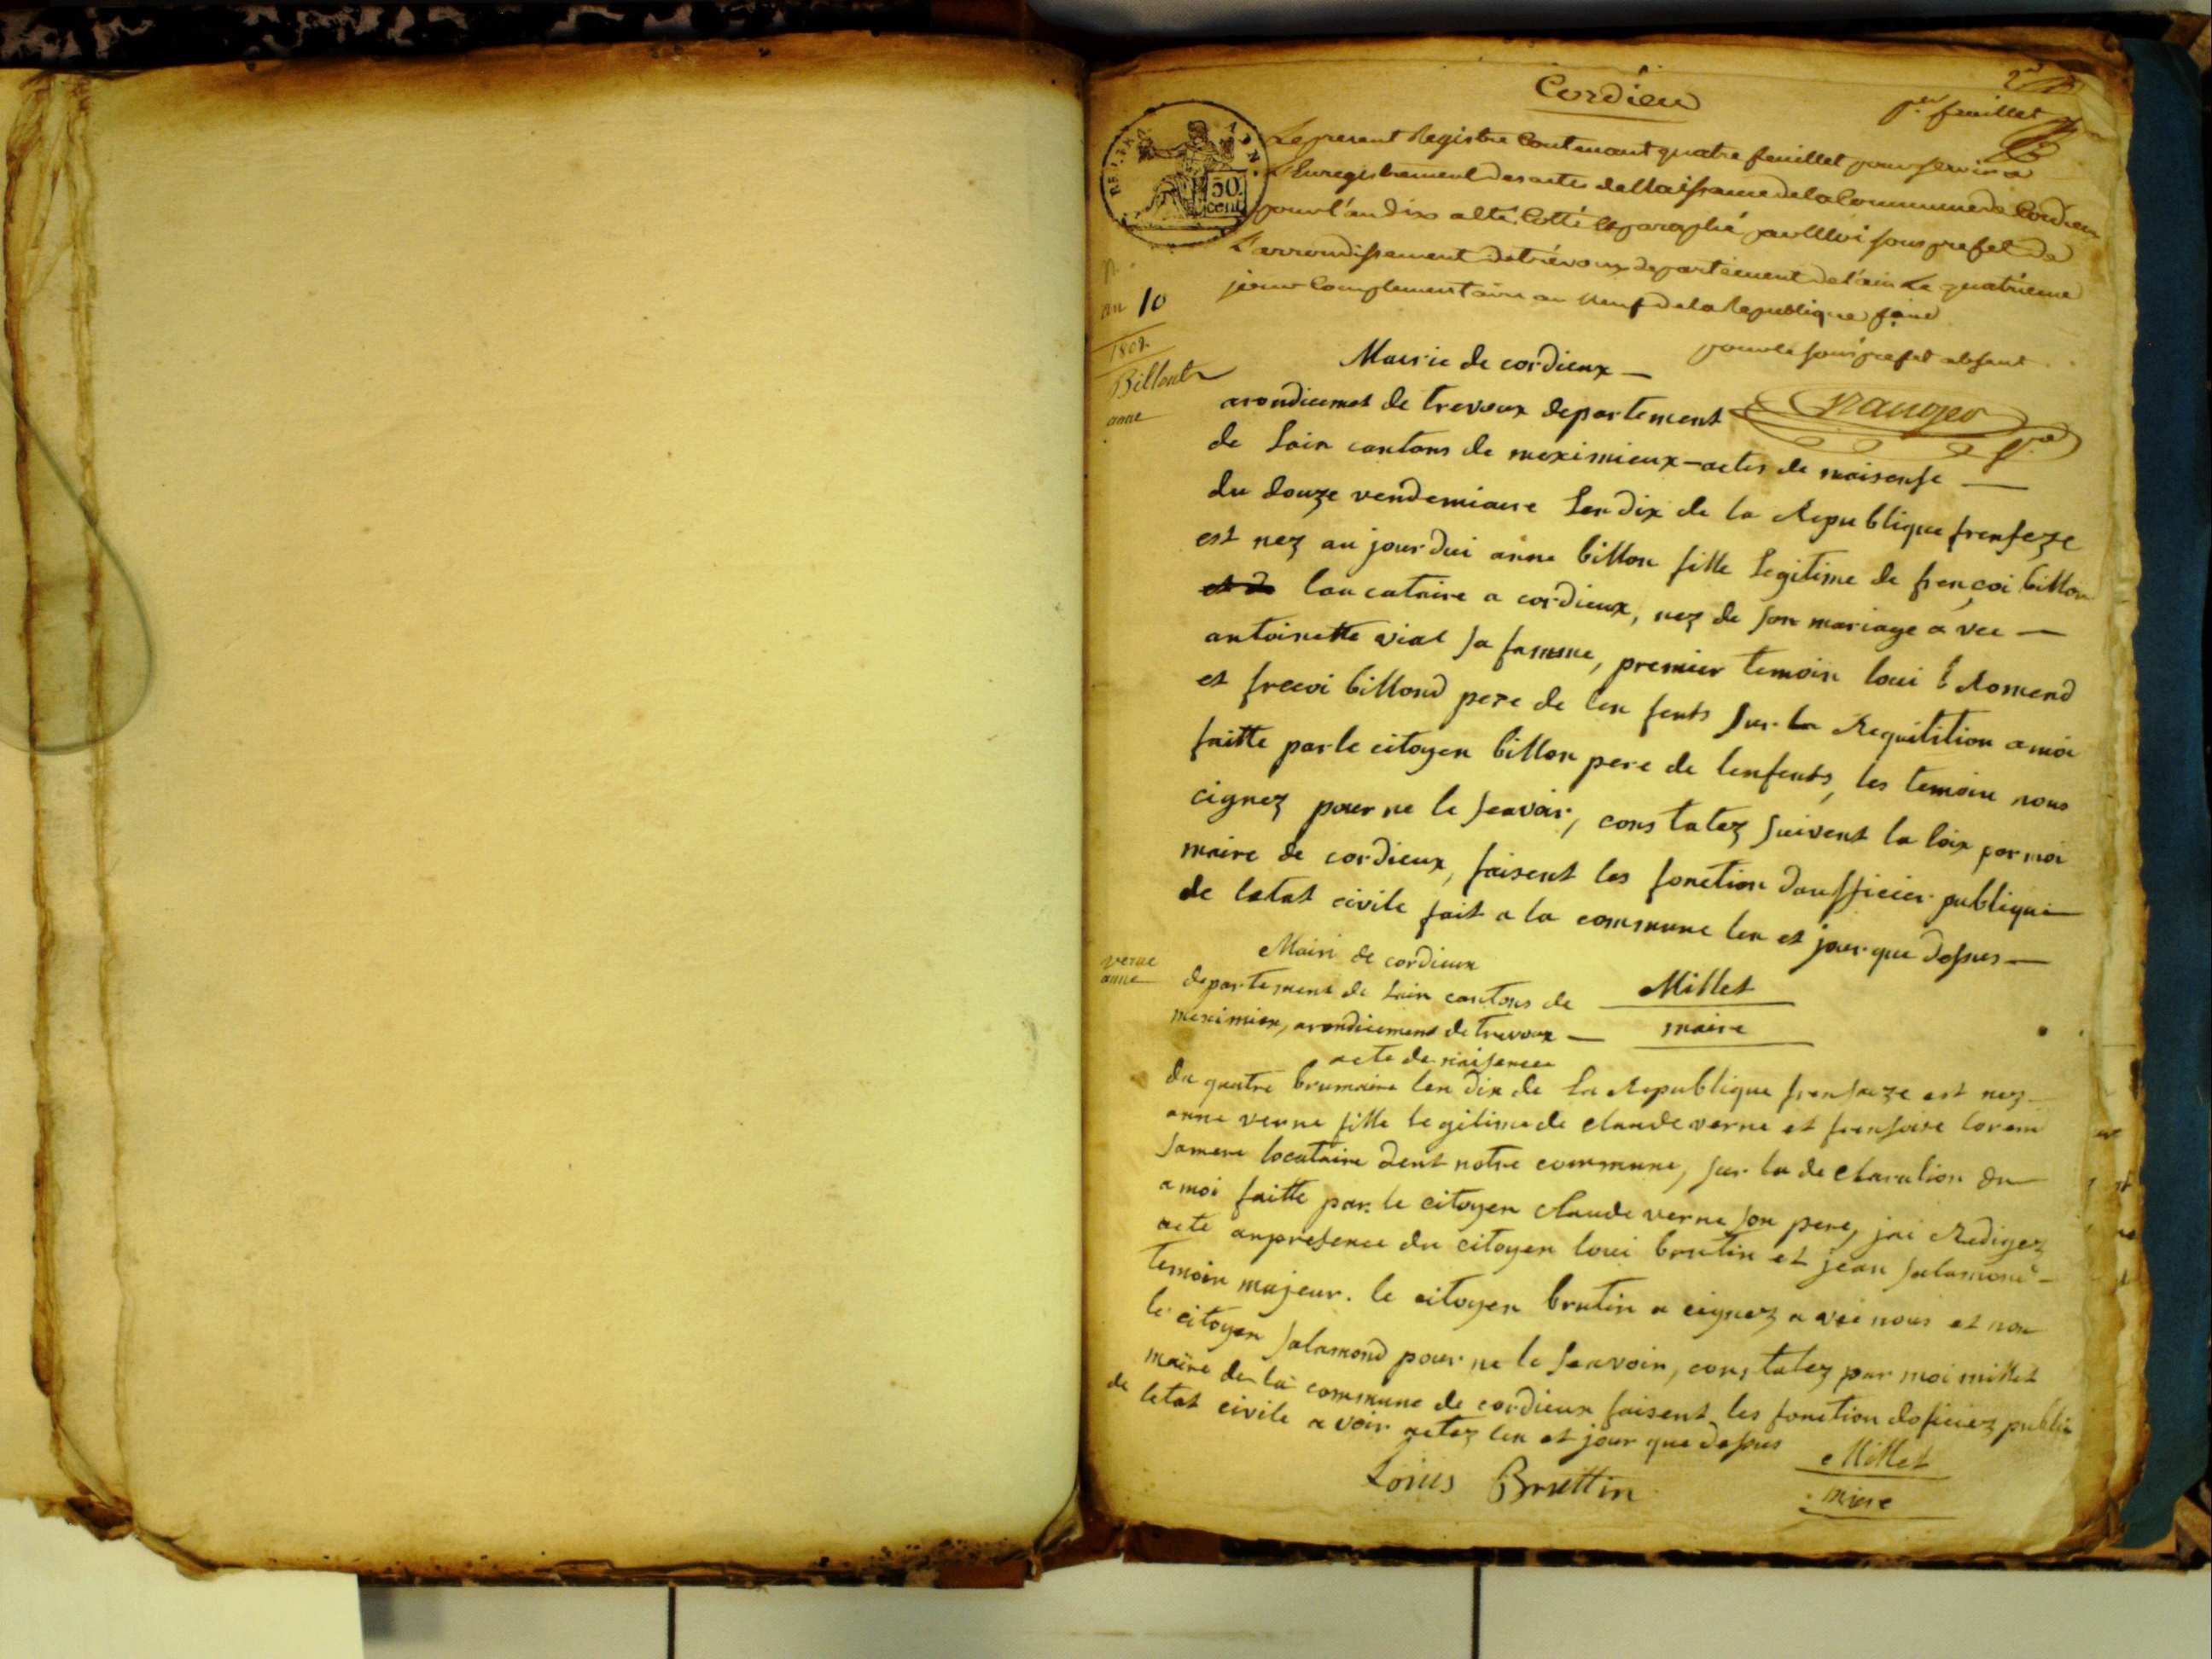 Cordieu
2
pr. feuillet
Le present Registre Contenant quatre feuillet pour servir a
L'Enregistrement des actes de Naissance de la Commune de Cordieu
pour l'an dix a été Cotté et paraphé par Moi sous prefet de
L'arrondissement de trévoux departement de l'ain Le quatrieme
jour Complementaire an Neuf de la Republique
pour le sous prefet absent
REP. FRA.
50
cent
an 10
1802
Billont
anne
Mairie de cordieux
arondicemet de trevoux departement
de Lain cantons de meximieux - actes de naisense
du douze vendemiaire Lan dix de la Republique frenseze
est nez au jourdui anne billon fille Legitime de françoi billon
et de laucataire a cordieux, nez de son mariage a vec
antoinette vial sa famme, premier temoin loui Romend
et frecoi billond pere de len fents sur la Requitition a moi
faitte par le citoyen billon pere de lenfents, les temoin nons
cignez pour ne le seavoir, cons tatez suivent la loix par moi
maire de cordieux, faisent les fonction daufficier publique
de letat civile fait a la commune len et jour que dessus
Millet
maire
verne
anne
Mairi de cordieux
departement de Lain cantons de
meximiex, arondicement de trevoux
acte de naisence
du quatre brumaire len dix de La Republique fransaize est nez
anne verne fille legitime de claude verne et fransoise lorem
samere locataire dent notre commune, sur la de claration du
a moi faitte par le citoyen claude verne son pere, jai Redigez
acte anpresence du citoyen loui brutin et jean salamond
temoin majeur. le citoyen brutin a cignez a vec nous et non
le citoyen salamond pour ne le seavoir, cons tatez par moi millet
maire de la commune de cordieux faisent les fonction doficiez public
de letat civile a voir actez len et jour que dessus
Millet
mire
Loius Bruttin